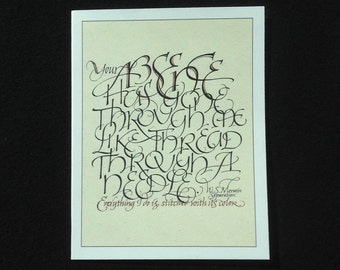 Your ABSENCE
HAS GONE
THROUGH ME
LIKE THREAD
THROUGH A
NEEDLE.
W.S. Merwin
Everything I do is stitched with its color.